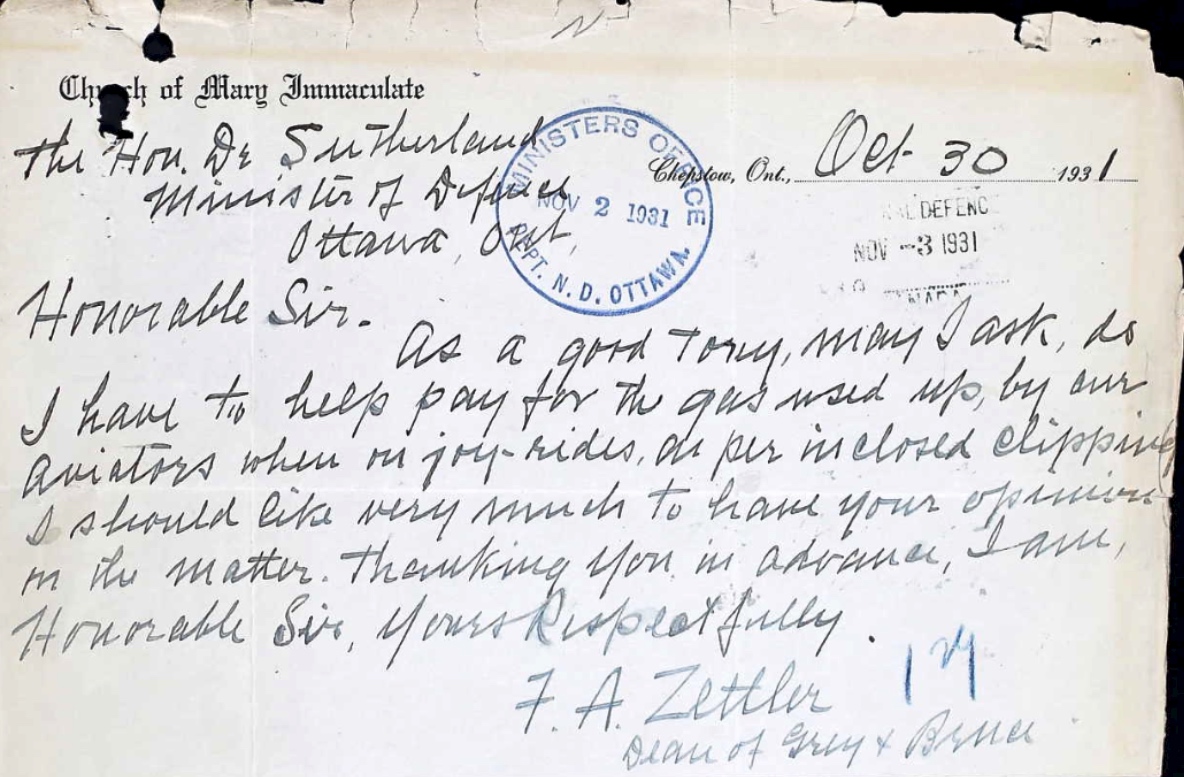 Church of Mary Immaculate
The Hon. Dr Sutherland
Minister of Defence
Ottawa, Ont,
MINISTERS OFFICE
NOV 2 1931
DEPT. N. D. OTTAWA.
Chepstow, Ont., Oct 30 1931
DEFENC
NOV -3 1931
Honorable Sir.
As a good Tory, may I ask, do
I have to help pay for the gas used up, by our
aviators when on joy-rides, as per inclosed clipping
I should like very much to have your opinion
on the matter. Thanking you in advance, I am,
Honorable Sir, Yours Respectfully.
F. A. Zettler
Dean of Grey & Bruce